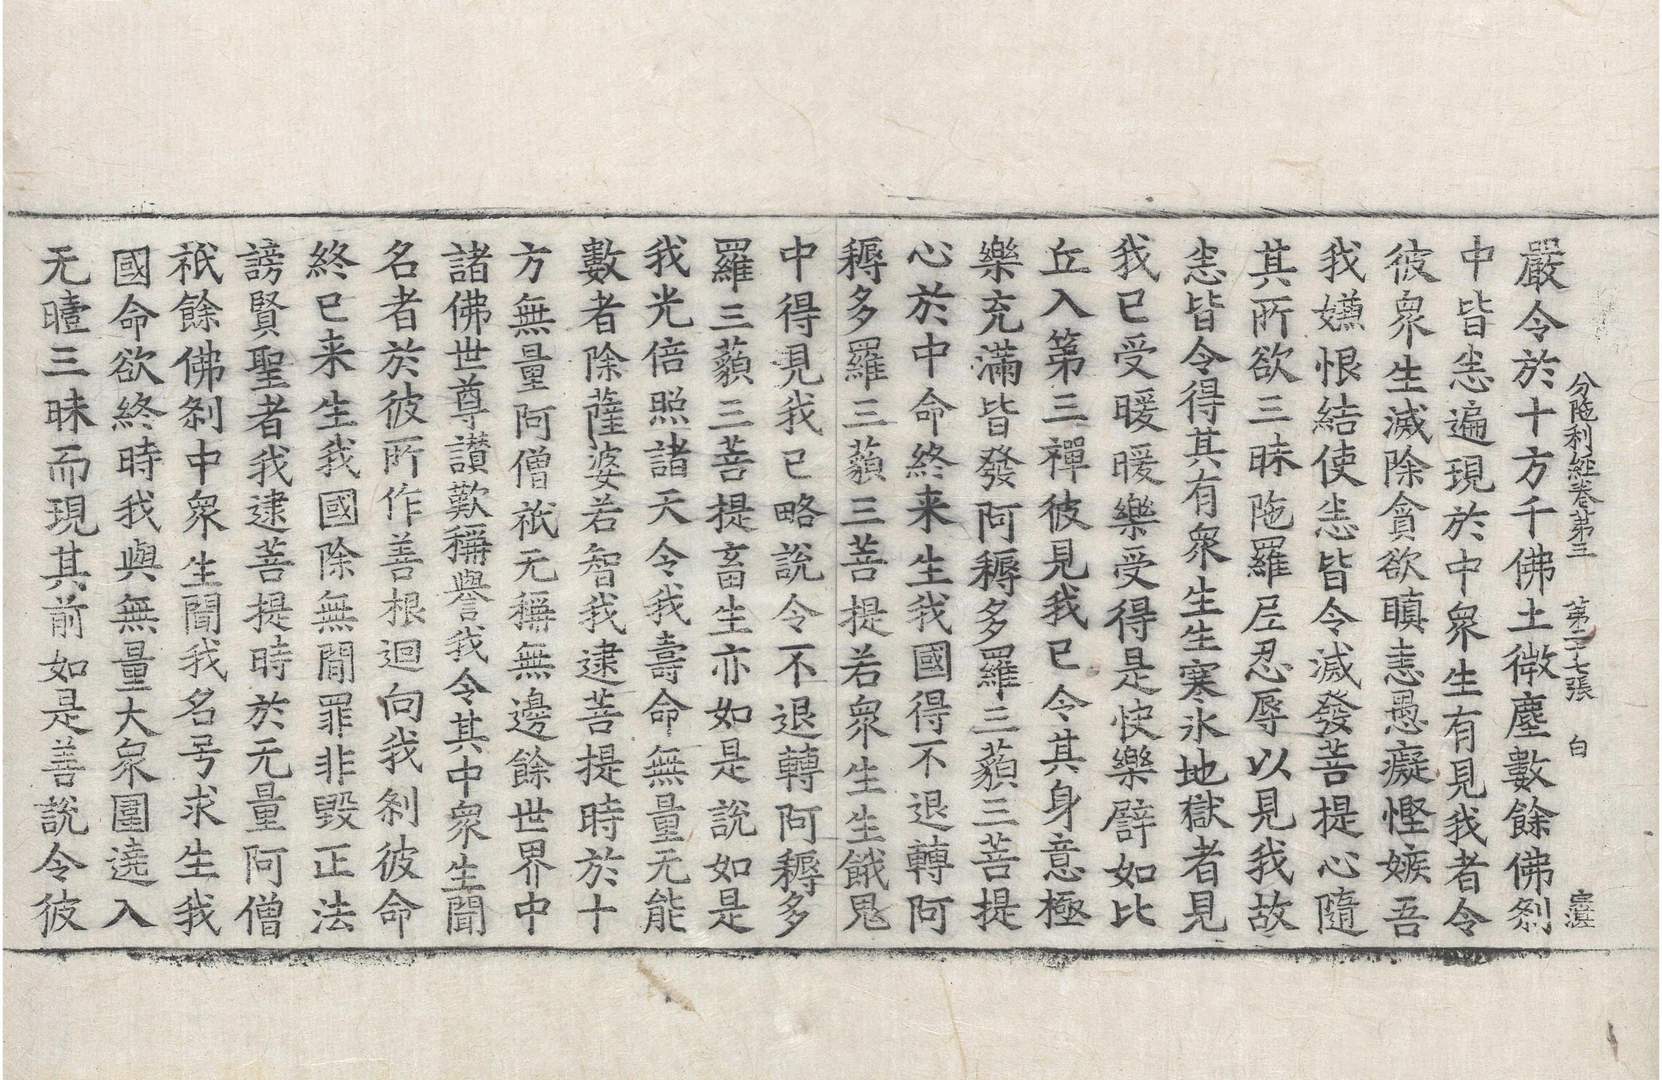 分陁利經卷第三　第二十七張　白
嚴令於十方千佛土微塵數餘佛刹
中皆悉遍現於中衆生有見我者令
彼衆生滅除貪欲瞋恚愚癡慳嫉吾
我嫌恨結使悉皆令滅發菩提心隨
其所欲三昧陁羅尼忍辱以見我故
悉皆令得其有衆生生寒氷地獄者見
我已受暖暖樂受得是快樂譬如比
丘入第三禪彼見我已令其身意極
樂充滿皆發阿耨多羅三藐三菩提
心於中命終来生我國得不退轉阿
耨多羅三藐三菩提若衆生生餓鬼
中得見我已略說令不退轉阿耨多
羅三藐三菩提畜生亦如是說如是
我光倍照諸天令我壽命無量无能
數者除薩婆若智我逮菩提時於十
方無量阿僧祇无稱無邊餘世界中
諸佛世尊讃歎稱譽我令其中衆生聞
名者於彼所作善根迴向我刹彼命
終已来生我國除無間罪非毀正法
謗賢聖者我逮菩提時於无量阿僧
祇餘佛刹中衆生聞我名号求生我
國命欲終時我與無量大衆圍遶入
无曀三昧而現其前如是善說令彼